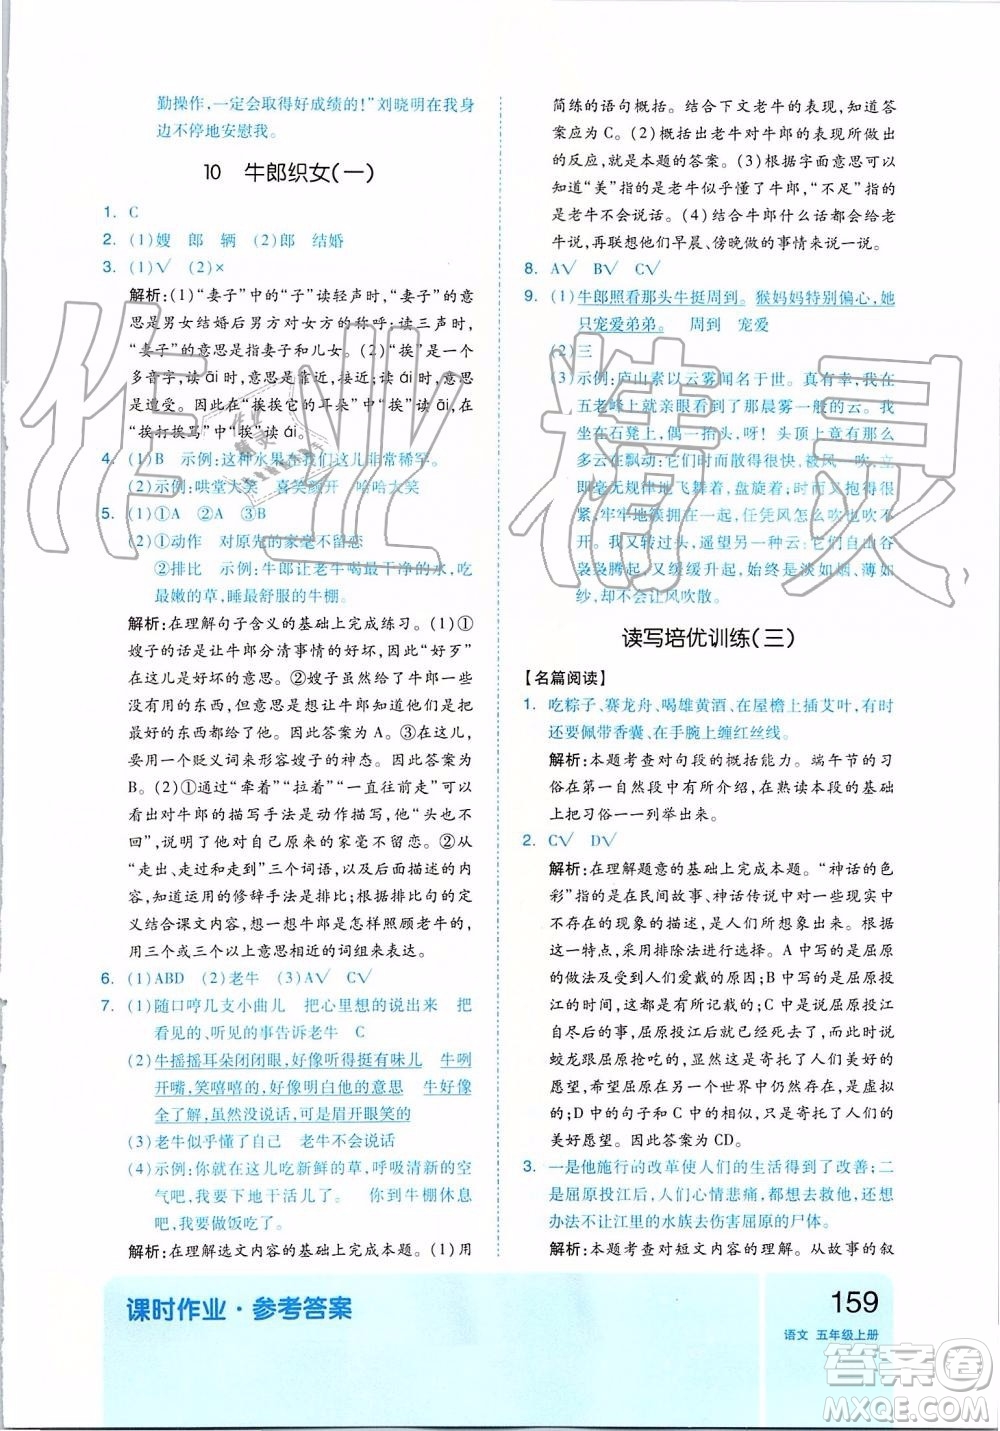 勤操作,一定会取得好成绩的!”刘晓明在我身
边不停地安慰我。
10 牛郎织女(一)
1. C
2. (1)嫂 郎 辆 (2)郎 结婚
3. (1)√ (2)×
解析:(1)“妻子”中的“子”读轻声时,“妻子”的意
思是男女结婚后男方对女方的称呼;读三声时,
“妻子”的意思是妻子和儿女。(2)“挨”是一个
多音字,读 āi 时,意思是靠近,接近;读 ái 时,意思
是遭受。因此在“挨挨它的耳朵”中“挨”读 āi,在
“挨打挨骂”中“挨”读 ái。
4. (1)B 示例:这种水果在我们这里非常稀罕。
(2)示例:哄堂大笑 喜笑颜开 哈哈大笑
5. (1)①A ②A ③B
(2)①动作 对原先的家毫不留恋
②排比 示例:牛郎让老牛喝最干净的水,吃
最嫩的草,睡最舒服的牛棚。
解析:在理解句子含义的基础上完成练习。(1)①
嫂子的话是让牛郎分清事情的好坏,因此“好歹”
在这儿是好坏的意思。②嫂子是想让牛郎知道没
有用的东西,但又想表达出给牛郎的东西是
最好的东西,因此答案为 A。③主要考查学生
要用一个贬义词来形容嫂子的神态。因此答案为
B。(2)①通过“牵着”“拉着”“一直往前走”可
以看出对牛郎的描写手法是动作描写,“头也不
回”一词,说明了对自己原来的家毫不留恋;②从
“走出、走过和走到”三个词语,以及出现的三个内
容,知道运用的修辞手法是排比;根据排比句的定
义结合课文内容,想一想牛郎是怎样照顾老牛的,
用三个或三个以上意思相近的词组来表达。
6. (1)ABD (2)老牛 (3)A√ C√
7. (1)随口哼几支小曲儿 把心里想的说出来 把
看见的、听见的事告诉老牛 C
(2)牛摇摇耳朵闭闭眼,好像听得挺有味儿 牛咧
开嘴,笑嘻嘻的,好像明白他的意思 牛好像
全了解,虽然没说话,可是眉开眼笑的
(3)老牛似乎懂了自己 老牛不会说话
(4)示例:你就在这儿吃新鲜的草,呼吸清新的空
气吧,我要下地干活儿了。 你到牛棚休息
吧,我要做饭吃了。
解析:在理解选文内容的基础上完成本题。(1)用
简练的语句概括。结合下文老牛的表现,知道答
案应为 C。(2)概括出老牛对牛郎的所作所做出
的反应,就是本题的答案。(3)根据字面意思可以
知道“美”指的是老牛似乎懂了牛郎,“不足”指的
是老牛不会说话。(4)结合牛郎什么话都会给老
牛说,再结合他们早晨、傍晚做的事情来说一说。
8. A√ B√ C√
9. (1)牛郎照看那头牛挺周到。猴妈妈特别偏心,她
只宠爱弟弟。 周到 宠爱
(2)三
(3)示例:庐山素以云雾闻名于世。真有幸,我在
五老峰上就亲眼看到了那晨雾一般的云。我
坐在石凳上,偶一抬头,妙哉!头顶上刚才还
多云在飘动,四周散得很开,被风一吹,
忽毫无规律地飞散着,盘旋着,
紧,牢牢地簇拥着,任凭风怎么吹也吹不
开。我又转过头,遥望另一种云:它们从山谷
袅袅腾起,又缓缓升起,始终是淡如烟、薄如
纱,却不会让风吹散。
读写培优训练(三)
【名篇阅读】
1. 吃粽子、赛龙舟、喝雄黄酒、在屋檐上插艾叶,有时
还要佩带香囊、在手腕上缠红丝线。
解析:本题考查对句段的概括能力。端午节的习
俗在第一自然段中有介绍,在熟读本段的基础上
把习俗一一列举出来。
2. C√ D√
解析:在理解题意的基础上完成本题。“神话的色
彩”指的是在民间故事、神话传说中对现实生活中
不存在的现象的描述,是人们想象出来的。根据
这一特点,采用排除法进行选择。A 中写的是屈原
的做法及受人们爱戴的原因;B 中写的是屈原投
江的时间,有史料记载,不是神话;C 中写屈原投江
自尽后的事,屈原投江后就已经死亡,不可能再写
蛟龙跟屈原抢吃的,显然这是寄托了人们美好的
愿望,希望屈原在另一个世界中也能幸福,是虚拟
的;D 中的句子和 C 中的相似,只是寄托了人们的
美好愿望。因此答案为 CD。
3. 一是他施行的改革使人们的生活得到了改善;二
是屈原投江后,人们心情悲痛,划着龙舟去救他,还想
办法不让江里的水族去伤害屈原的尸体。
解析:本题考查对短文内容的理解。从故事的叙
课时作业·参考答案
159
语文 五年级上册
作业精灵
答案圈
MXQE.COM